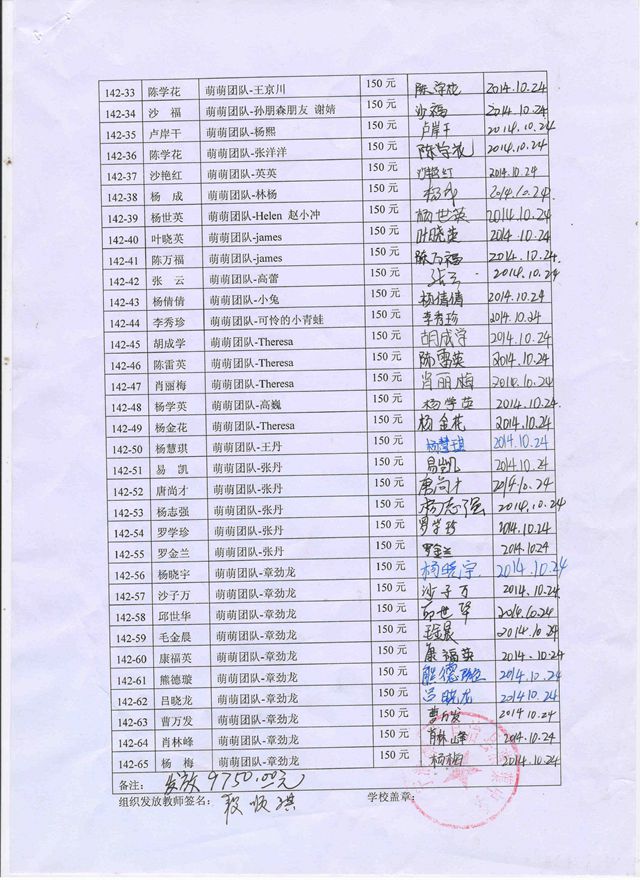 142-33 陈学花 萌萌团队-王京川 150 元 陈学花 2014.10.24
142-34 沙 福 萌萌团队-孙朋森朋友 谢婧 150 元 沙福 2014.10.24
142-35 卢岸干 萌萌团队-杨熙 150 元 卢岸干 2014.10.24
142-36 陈学花 萌萌团队-张洋洋 150 元 陈学花 2014.10.24
142-37 沙艳红 萌萌团队-英英 150 元 沙艳红 2014.10.24
142-38 杨 成 萌萌团队-林杨 150 元 杨成 2014.10.24
142-39 杨世英 萌萌团队-Helen 赵小冲 150 元 杨世英 2014.10.24
142-40 叶晓英 萌萌团队-james 150 元 叶晓英 2014.10.24
142-41 陈万福 萌萌团队-james 150 元 陈万福 2014.10.24
142-42 张 云 萌萌团队-高蕾 150 元 张云 2014.10.24
142-43 杨倩倩 萌萌团队-小兔 150 元 杨倩倩 2014.10.24
142-44 李秀珍 萌萌团队-可怜的小青蛙 150 元 李秀珍 2014.10.24
142-45 胡成学 萌萌团队-Theresa 150 元 胡成学 2014.10.24
142-46 陈雷英 萌萌团队-Theresa 150 元 陈雷英 2014.10.24
142-47 肖丽梅 萌萌团队-Theresa 150 元 肖丽梅 2014.10.24
142-48 杨学英 萌萌团队-高巍 150 元 杨学英 2014.10.24
142-49 杨金花 萌萌团队-Theresa 150 元 杨金花 2014.10.24
142-50 杨慧琪 萌萌团队-王丹 150 元 杨慧琪 2014.10.24
142-51 易 凯 萌萌团队-张丹 150 元 易凯 2014.10.24
142-52 唐尚才 萌萌团队-张丹 150 元 唐尚才 2014.10.24
142-53 杨志强 萌萌团队-张丹 150 元 杨志强 2014.10.24
142-54 罗学珍 萌萌团队-张丹 150 元 罗学珍 2014.10.24
142-55 罗金兰 萌萌团队-张丹 150 元 罗金兰 2014.10.24
142-56 杨晓宇 萌萌团队-章劲龙 150 元 杨晓宇 2014.10.24
142-57 沙子万 萌萌团队-章劲龙 150 元 沙子万 2014.10.24
142-58 邱世华 萌萌团队-章劲龙 150 元 邱世华 2014.10.24
142-59 毛金晨 萌萌团队-章劲龙 150 元 毛金晨 2014.10.24
142-60 康福英 萌萌团队-章劲龙 150 元 康福英 2014.10.24
142-61 熊德璇 萌萌团队-章劲龙 150 元 熊德璇 2014.10.24
142-62 吕晓龙 萌萌团队-章劲龙 150 元 吕晓龙 2014.10.24
142-63 曹万发 萌萌团队-章劲龙 150 元 曹万发 2014.10.24
142-64 肖林峰 萌萌团队-章劲龙 150 元 肖林峰 2014.10.24
142-65 杨 梅 萌萌团队-章劲龙 150 元 杨梅 2014.10.24
备注： 发放9750.00元
组织发放教师签名： 学校盖章：